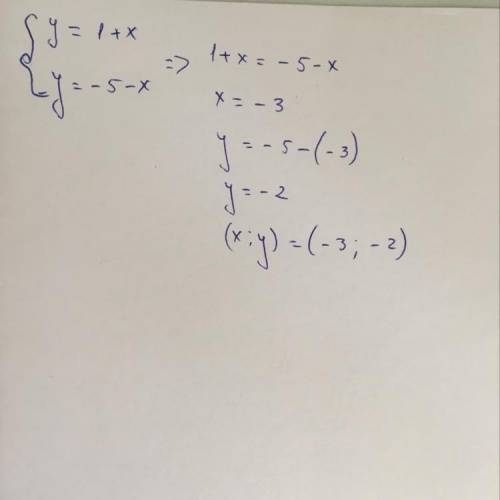 y = 1+x
y = -5-x
=> 1+x = -5-x
x = -3
y = -5-(-3)
y = -2
(x;y) = (-3; -2)